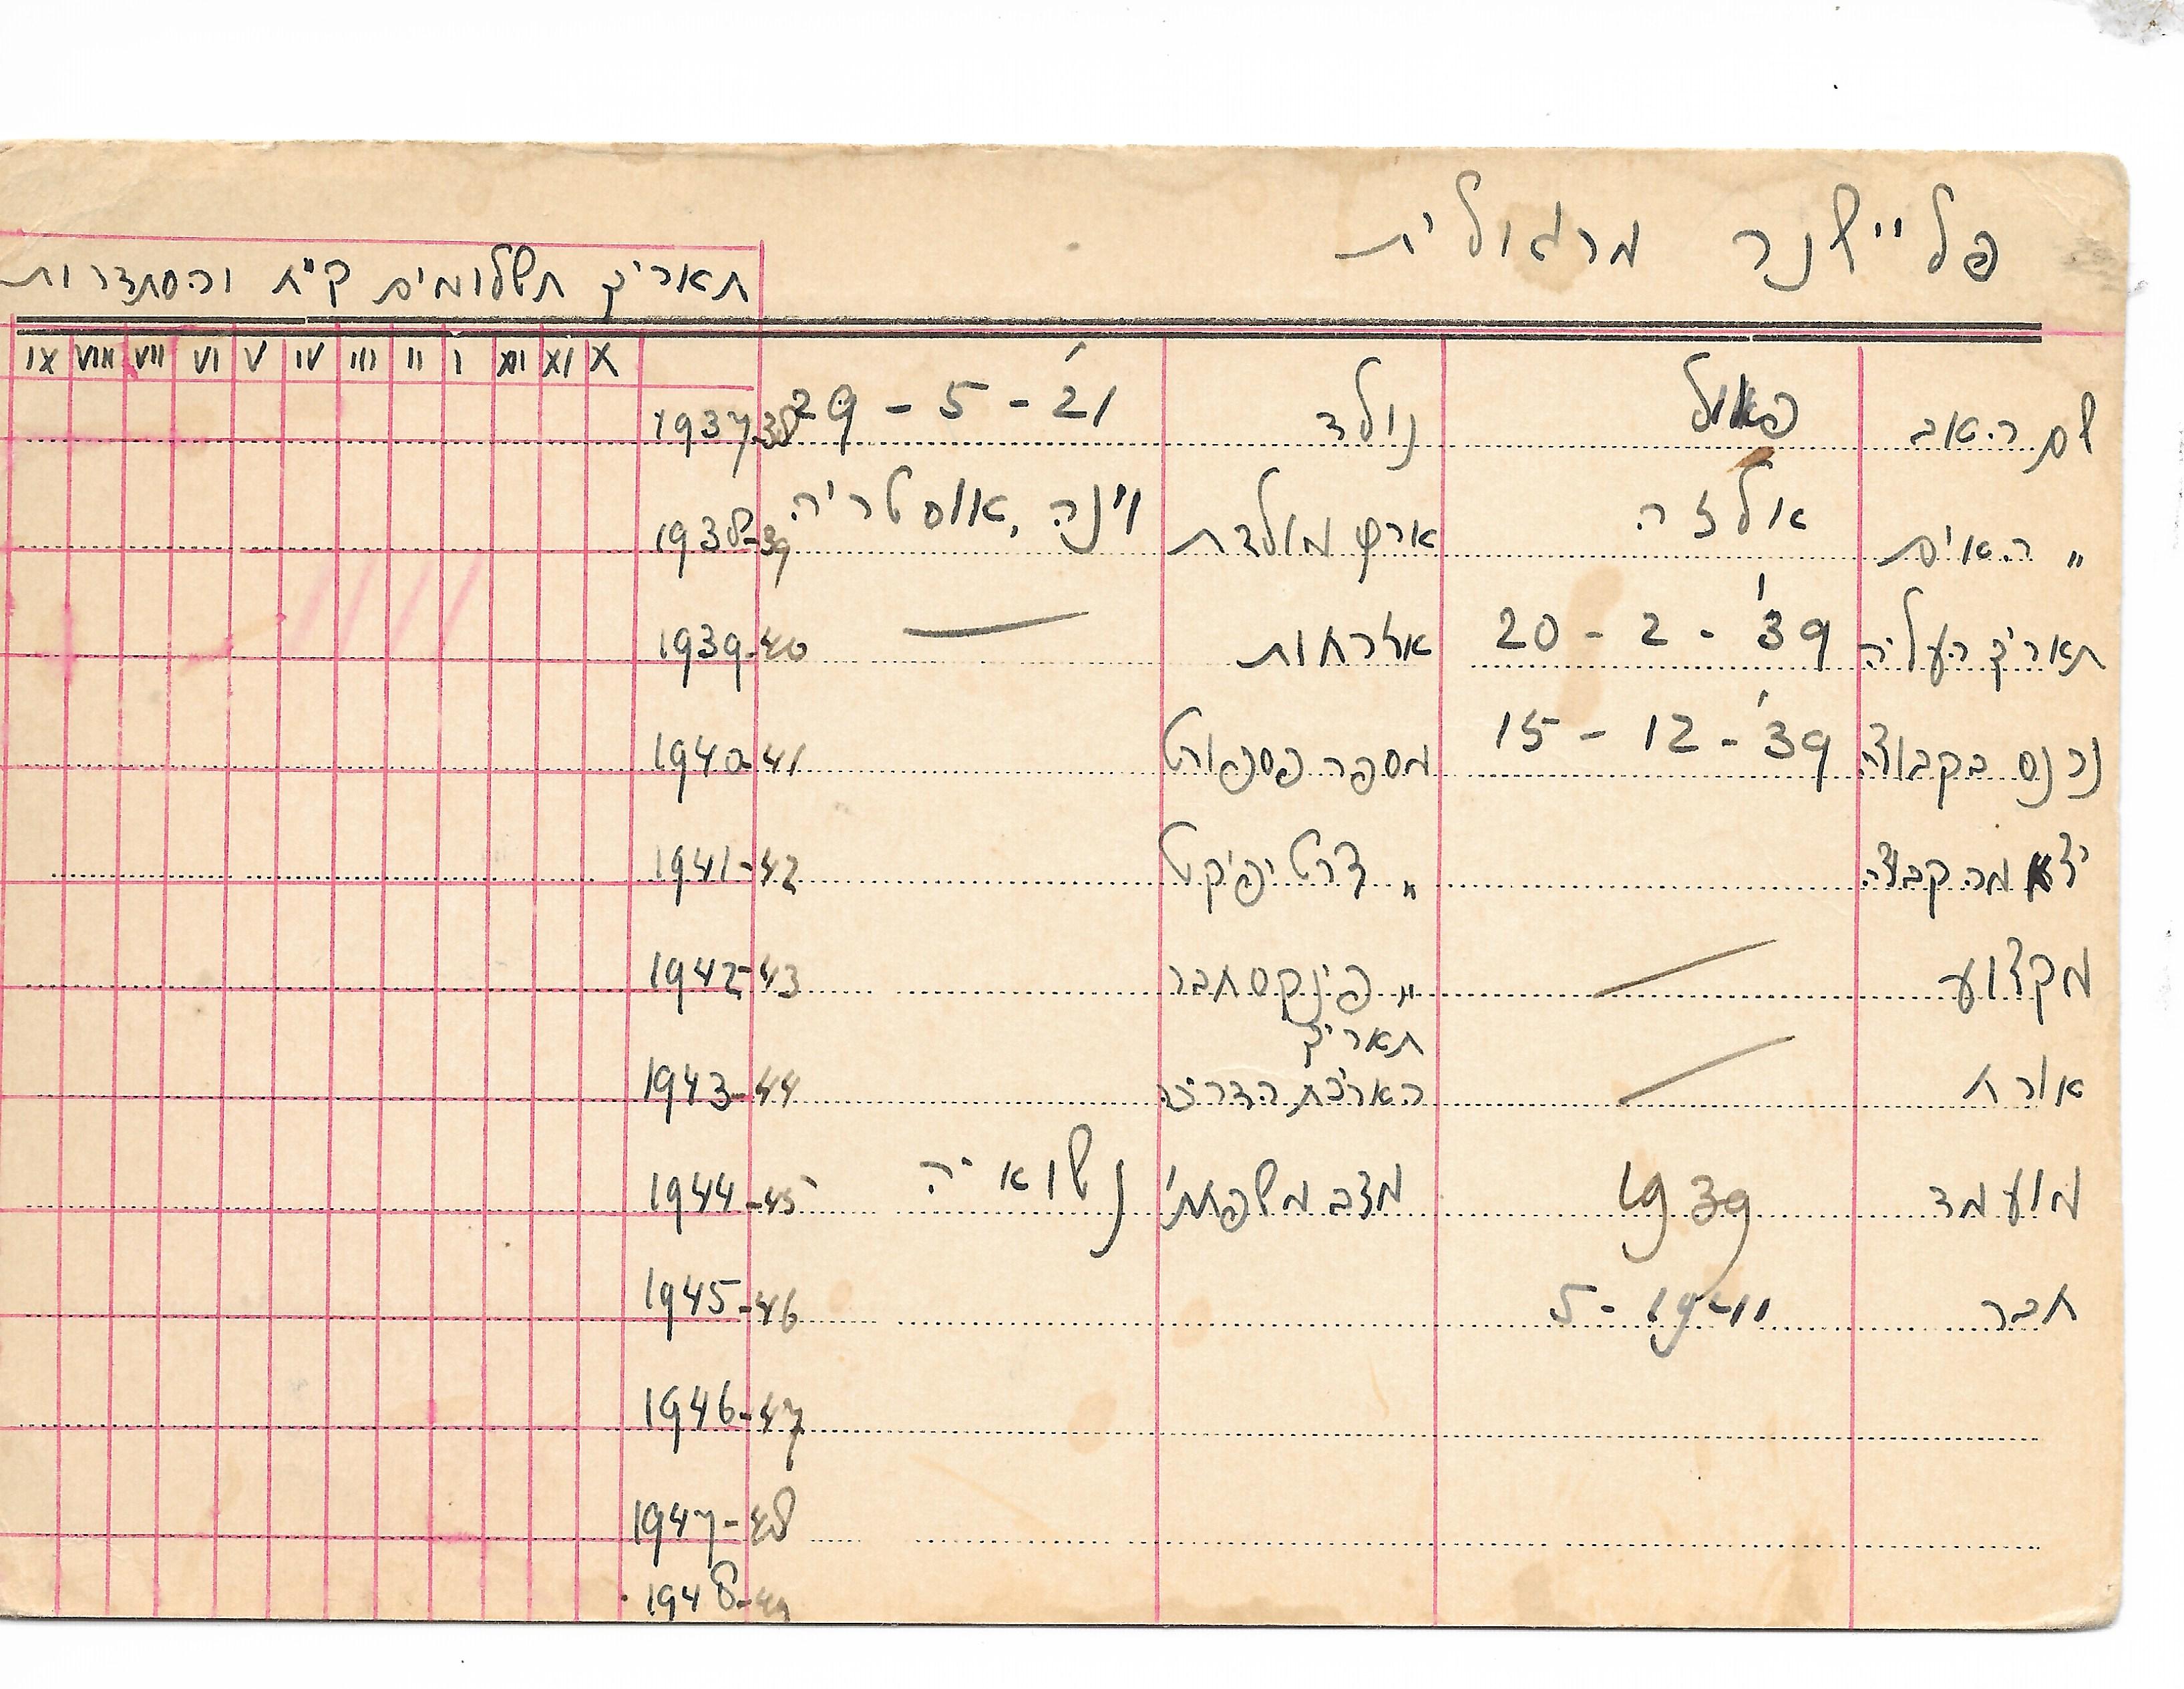 פליישנר מרגולית
תאריך תשלומים ק"ח והסתדרות
שם האב פאול נולד 29 - 5 - 21'
" האים אלזה ארץ מולדת וינה, אוסטריה.
תאריך העליה 20 - 2 - 39' אזרחות —
נכנס בקבוצה 15 - 12 - 39' מספר פספורט
יצא מהקבוצה " צרטיפיקט
מקצוע — " פינקס חבר
תאריך
אורח — הארכת הדרכיה
מועמד 1939 מצב משפחתי נשואיה
חבר 5 - 1941
X XI XII I II III IV V VI VII VIII IX
1937-38
1938-39
1939-40
1940-41
1941-42
1942-43
1943-44
1944-45
1945-46
1946-47
1947-48
1948-49